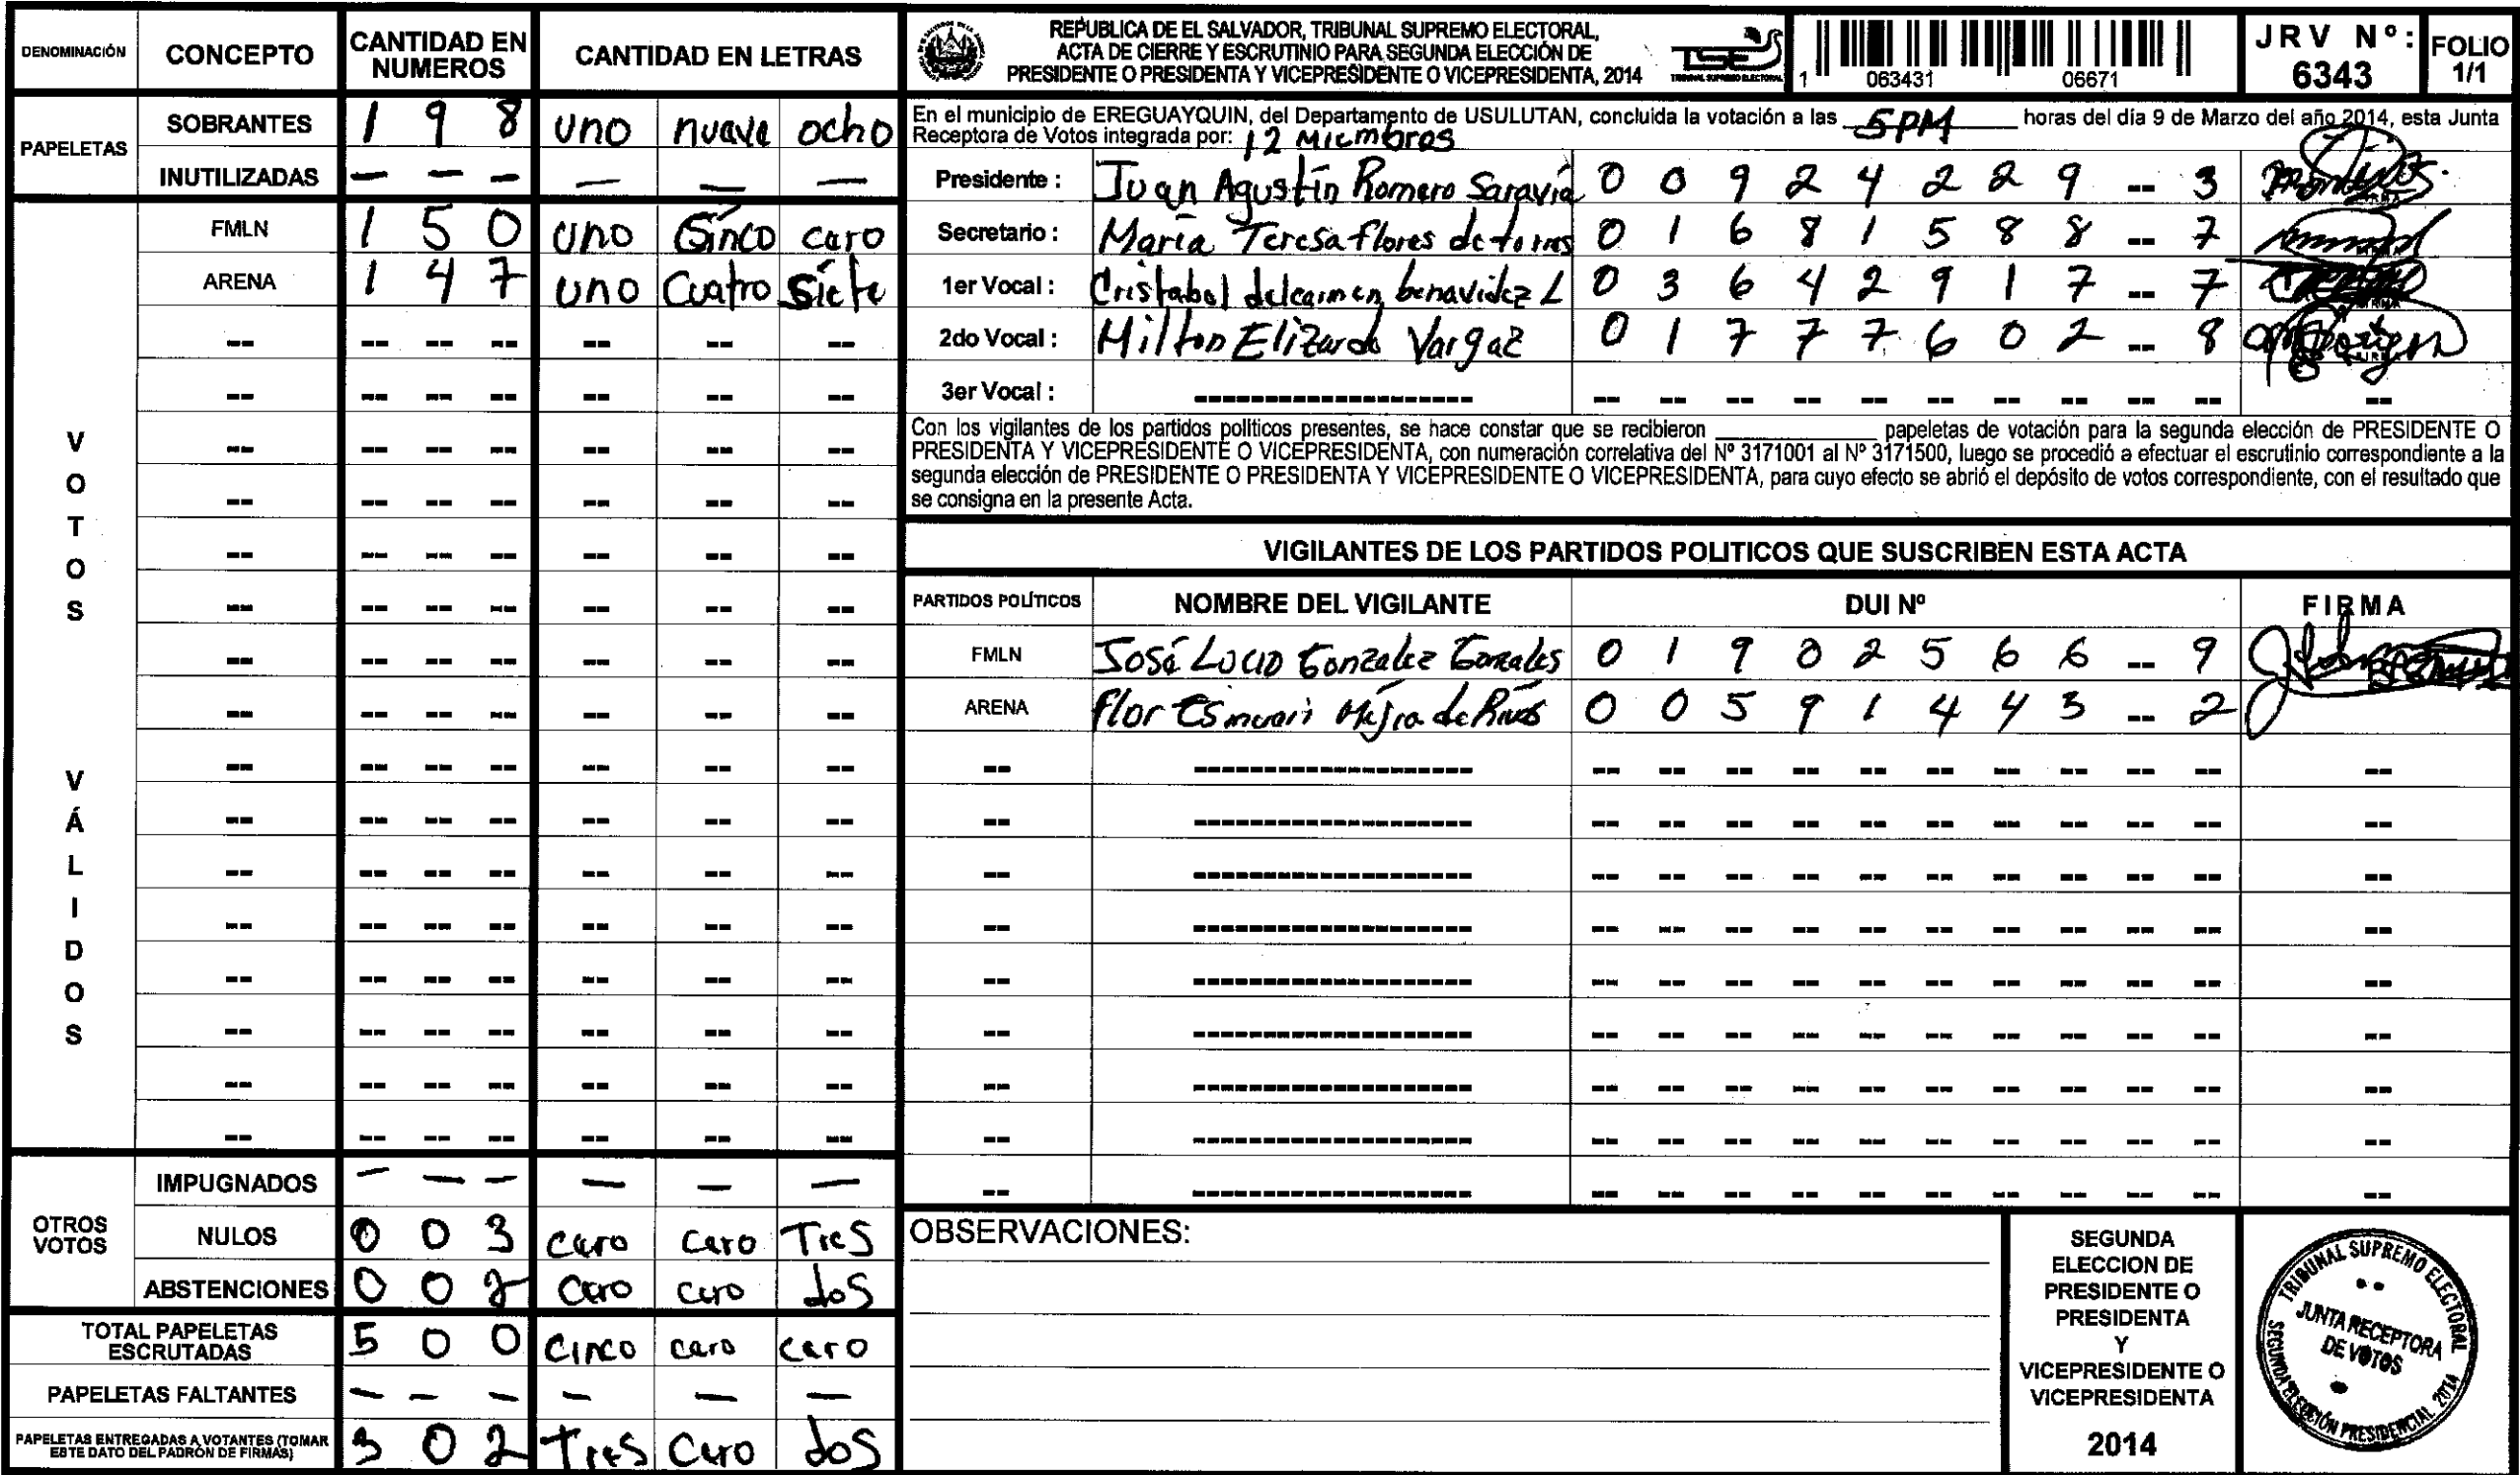 DENOMINACIÓN CONCEPTO CANTIDAD EN NUMEROS CANTIDAD EN LETRAS
PAPELETAS
SOBRANTES 1 9 8 uno nueve ocho
INUTILIZADAS — — — — — —
VOTOS VÁLIDOS
FMLN 1 5 0 uno Cinco cero
ARENA 1 4 7 uno Cuatro Siete
OTROS VOTOS
IMPUGNADOS — — — — — —
NULOS 0 0 3 cero cero Tres
ABSTENCIONES 0 0 2 cero cero dos
TOTAL PAPELETAS ESCRUTADAS 5 0 0 cinco cero cero
PAPELETAS FALTANTES — — — — — —
PAPELETAS ENTREGADAS A VOTANTES (TOMAR ESTE DATO DEL PADRÓN DE FIRMAS) 3 0 2 Tres Cero dos
REPUBLICA DE EL SALVADOR, TRIBUNAL SUPREMO ELECTORAL,
ACTA DE CIERRE Y ESCRUTINIO PARA SEGUNDA ELECCIÓN DE
PRESIDENTE O PRESIDENTA Y VICEPRESIDENTE O VICEPRESIDENTA, 2014
TSE
TRIBUNAL SUPREMO ELECTORAL
1 063431 06671
JRV Nº: 6343
FOLIO 1/1
En el municipio de EREGUAYQUIN, del Departamento de USULUTAN, concluida la votación a las 5PM horas del día 9 de Marzo del año 2014, esta Junta
Receptora de Votos integrada por: 12 Miembros
Presidente : Juan Agustín Romero Saravia 0 0 9 2 4 2 2 9 -- 3
Secretario : María Teresa flores de torres 0 1 6 8 1 5 8 8 -- 7
1er Vocal : Cristabel delcarmen benavidez L 0 3 6 4 2 9 1 7 -- 7
2do Vocal : Milton Elizardo Vargaz 0 1 7 7 7 6 0 2 -- 8
3er Vocal :
Con los vigilantes de los partidos políticos presentes, se hace constar que se recibieron ____________ papeletas de votación para la segunda elección de PRESIDENTE O
PRESIDENTA Y VICEPRESIDENTE O VICEPRESIDENTA, con numeración correlativa del Nº 3171001 al Nº 3171500, luego se procedió a efectuar el escrutinio correspondiente a la
segunda elección de PRESIDENTE O PRESIDENTA Y VICEPRESIDENTE O VICEPRESIDENTA, para cuyo efecto se abrió el depósito de votos correspondiente, con el resultado que
se consigna en la presente Acta.
VIGILANTES DE LOS PARTIDOS POLITICOS QUE SUSCRIBEN ESTA ACTA
PARTIDOS POLÍTICOS NOMBRE DEL VIGILANTE DUI Nº FIRMA
FMLN José Lucio Gonzalez Gonzales 0 1 9 0 2 5 6 6 -- 9
ARENA flor Mejia de 0 0 5 9 1 4 4 3 -- 2
OBSERVACIONES:
SEGUNDA
ELECCION DE
PRESIDENTE O
PRESIDENTA
Y
VICEPRESIDENTE O
VICEPRESIDENTA
2014
TRIBUNAL SUPREMO ELECTORAL
JUNTA RECEPTORA
DE VOTOS
SEGUNDA ELECCIÓN PRESIDENCIAL 2014